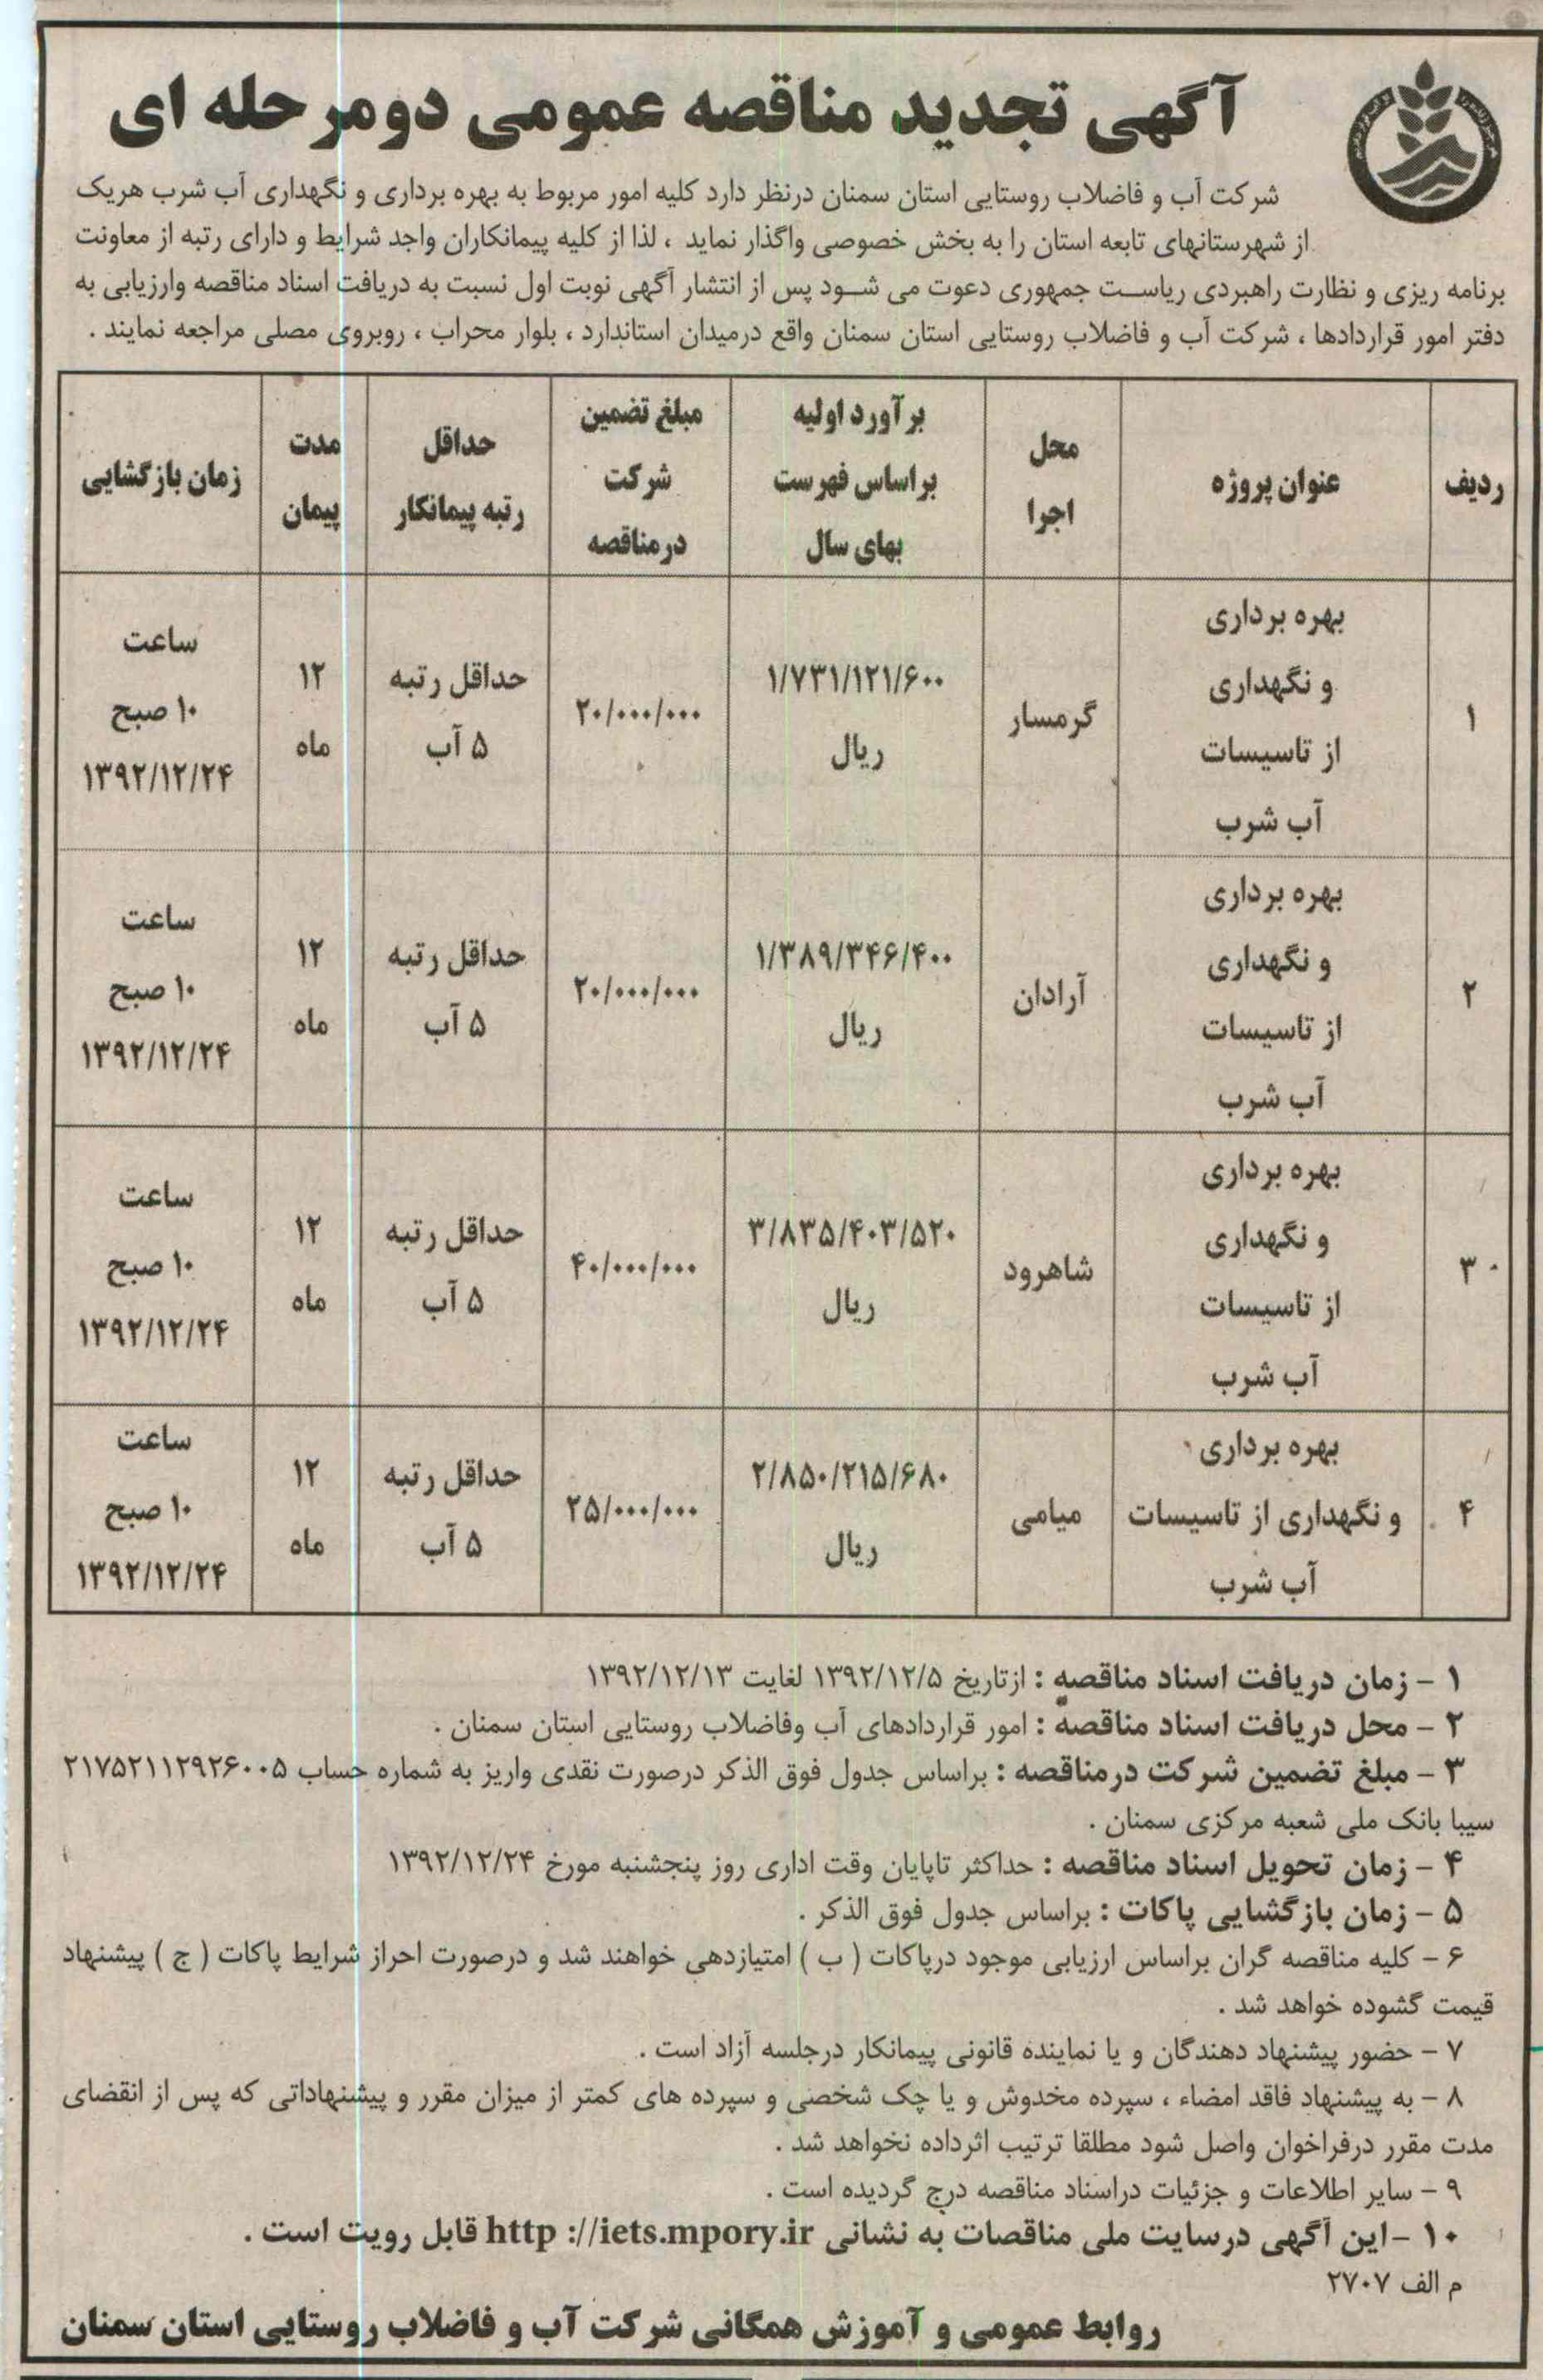 آگهی تجدید مناقصه عمومی دومرحله ای
شرکت آب و فاضلاب روستایی استان سمنان درنظر دارد کلیه امور مربوط به بهره برداری و نگهداری آب شرب هریک
از شهرستانهای تابعه استان را به بخش خصوصی واگذار نماید ، لذا از کلیه پیمانکاران واجد شرایط و دارای رتبه از معاونت
برنامه ریزی و نظارت راهبردی ریاست جمهوری دعوت می شود پس از انتشار آگهی نوبت اول نسبت به دریافت اسناد مناقصه وارزیابی به
دفتر امور قراردادها ، شرکت آب و فاضلاب روستایی استان سمنان واقع درمیدان استاندارد ، بلوار محراب ، روبروی مصلی مراجعه نمایند .
ردیف
عنوان پروژه
محل
اجرا
برآورد اولیه
براساس فهرست
بهای سال
مبلغ تضمین
شرکت
درمناقصه
حداقل
رتبه پیمانکار
مدت
پیمان
زمان بازگشایی
۱
بهره برداری
و نگهداری
از تاسیسات
آب شرب
گرمسار
۱/۷۳۱/۱۲۱/۶۰۰
ریال
۲۰/۰۰۰/۰۰۰
حداقل رتبه
۵ آب
۱۲
ماه
ساعت
۱۰ صبح
۱۳۹۲/۱۲/۲۴
۲
بهره برداری
و نگهداری
از تاسیسات
آب شرب
آرادان
۱/۳۸۹/۳۴۶/۴۰۰
ریال
۲۰/۰۰۰/۰۰۰
حداقل رتبه
۵ آب
۱۲
ماه
ساعت
۱۰ صبح
۱۳۹۲/۱۲/۲۴
۳
بهره برداری
و نگهداری
از تاسیسات
آب شرب
شاهرود
۳/۸۳۵/۴۰۳/۵۲۰
ریال
۴۰/۰۰۰/۰۰۰
حداقل رتبه
۵ آب
۱۲
ماه
ساعت
۱۰ صبح
۱۳۹۲/۱۲/۲۴
۴
بهره برداری
و نگهداری از تاسیسات
آب شرب
میامی
۲/۸۵۰/۲۱۵/۶۸۰
ریال
۲۵/۰۰۰/۰۰۰
حداقل رتبه
۵ آب
۱۲
ماه
ساعت
۱۰ صبح
۱۳۹۲/۱۲/۲۴
۱ - زمان دریافت اسناد مناقصه : ازتاریخ ۱۳۹۲/۱۲/۵ لغایت ۱۳۹۲/۱۲/۱۳
۲ - محل دریافت اسناد مناقصه : امور قراردادهای آب وفاضلاب روستایی استان سمنان .
۳ - مبلغ تضمین شرکت درمناقصه : براساس جدول فوق الذکر درصورت نقدی واریز به شماره حساب ۲۱۷۵۲۱۱۲۹۲۶۰۰۵
سیبا بانک ملی شعبه مرکزی سمنان .
۴ - زمان تحویل اسناد مناقصه : حداکثر تاپایان وقت اداری روز پنجشنبه مورخ ۱۳۹۲/۱۲/۲۴
۵ - زمان بازگشایی پاکات : براساس جدول فوق الذکر .
۶ - کلیه مناقصه گران براساس ارزیابی موجود درپاکات ( ب ) امتیازدهی خواهند شد و درصورت احراز شرایط پاکات ( ج ) پیشنهاد
قیمت گشوده خواهد شد .
۷ - حضور پیشنهاد دهندگان و یا نماینده قانونی پیمانکار درجلسه آزاد است .
۸ - به پیشنهاد فاقد امضاء ، سپرده مخدوش و یا چک شخصی و سپرده های کمتر از میزان مقرر و پیشنهاداتی که پس از انقضای
مدت مقرر درفراخوان واصل شود مطلقا ترتیب اثرداده نخواهد شد .
۹ - سایر اطلاعات و جزئیات دراسناد مناقصه درج گردیده است .
۱۰ -این آگهی درسایت ملی مناقصات به نشانی http ://iets.mpory.ir قابل رویت است .
م الف ۲۷۰۷
روابط عمومی و آموزش همگانی شرکت آب و فاضلاب روستایی استان سمنان